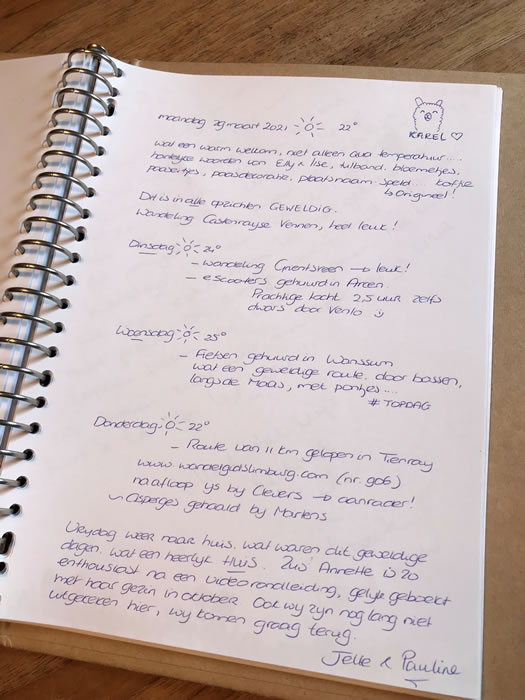 KAREL ♡
maandag 29 maart 2021 22°
wat een warm welkom, niet alleen qua temperatuur....
hartelijke woorden van Elly & Ilse, tulband, bloemetjes,
paaseitjes, paasdecoratie, plaatsnaam speld.... koffie
↳ Origineel!
Dit is in alle opzichten GEWELDIG.
Wandeling Castenrayse Vennen, heel leuk!
Dinsdag 24°
- wandeling Griendtsveen → leuk!
- escooters gehuurd in Arcen.
Prachtige tocht 2,5 uur zelfs
dwars door Venlo
Woensdag 25°
- Fietsen gehuurd in Wanssum
wat een geweldige route, door bossen,
langs de Maas, met pontjes....
# TOPDAG
Donderdag 22°
- Route van 11 km gelopen in Tienray
www.wandelgidslimburg.com (nr. 906)
na afloop ijs by Clevers → aanrader!
~ Asperges gehaald by Martens
Vrijdag weer naar huis. wat waren dit geweldige
dagen. wat een heerlijk HUIS. Zus Annette is zo
enthousiast na een videorondleiding, gelijk geboekt
met haar gezin in oktober. Ook wij zijn nog lang niet
uitgekeken hier, wij komen graag terug.
Jelle & Pauline